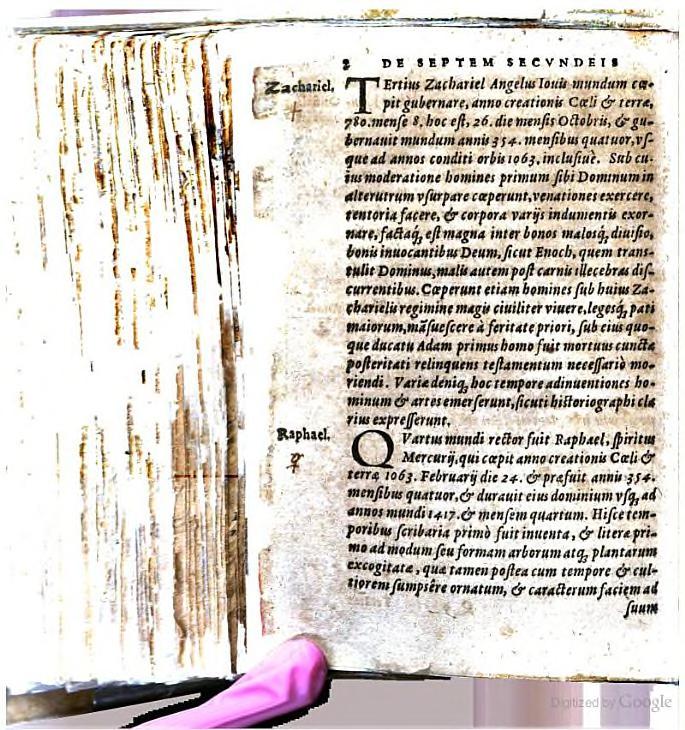 2 DE SEPTEM SECVNDEIS
Zachariel.
TErtius Zachariel Angelus Iouis mundum cœ-
pit gubernare, anno creationis Cœli & terræ,
780. mense 8, hoc est, 26. die mensis Octobris, & gu-
bernauit mundum annis 354. mensibus quatuor, vs-
que ad annos conditi orbis 1063. inclusiuè. Sub cu-
ius moderatione homines primum sibi Dominum in
alterutrum vsurpare cœperunt, venationes exercere,
tentoria facere, & corpora varijs indumentis exor-
nare, factaq́; est magna inter bonos malosq́; diuisio,
bonis inuocantibus Deum, sicut Enoch, quem trans-
tulit Dominus, malis autem post carnis illecebras dis-
currentibus. Cœperunt etiam homines sub huius Za-
charielis regimine magis ciuiliter viuere, legesq́; pati
maiorum, mãsuescere à feritate priori, sub eius quo-
que ducatu Adam primus homo fuit mortuus cunctæ
posteritati relinquens testamentum necessariò mo-
riendi. Variæ deniq; hoc tempore adinuentiones ho-
minum & artes emerserunt, sicuti historiographi cla
rius expresserunt.
Raphael.
☿
QVartus mundi rector fuit Raphael, spiritus
Mercurij, qui cœpit anno creationis Cœli &
terræ 1063. Februarij die 24. & præfuit annis 354.
mensibus quatuor, & durauit eius dominium vsq; ad
annos mundi 1417. & mensem quartum. Hisce tem-
poribus scribaria primò fuit inuenta, & literæ pri-
mo ad modum seu formam arborum atq; plantarum
excogitatæ, quæ tamen postea cum tempore & cul-
tiorem sumpsêre ornatum, & caracterum faciem ad
suum
Digitized by Google